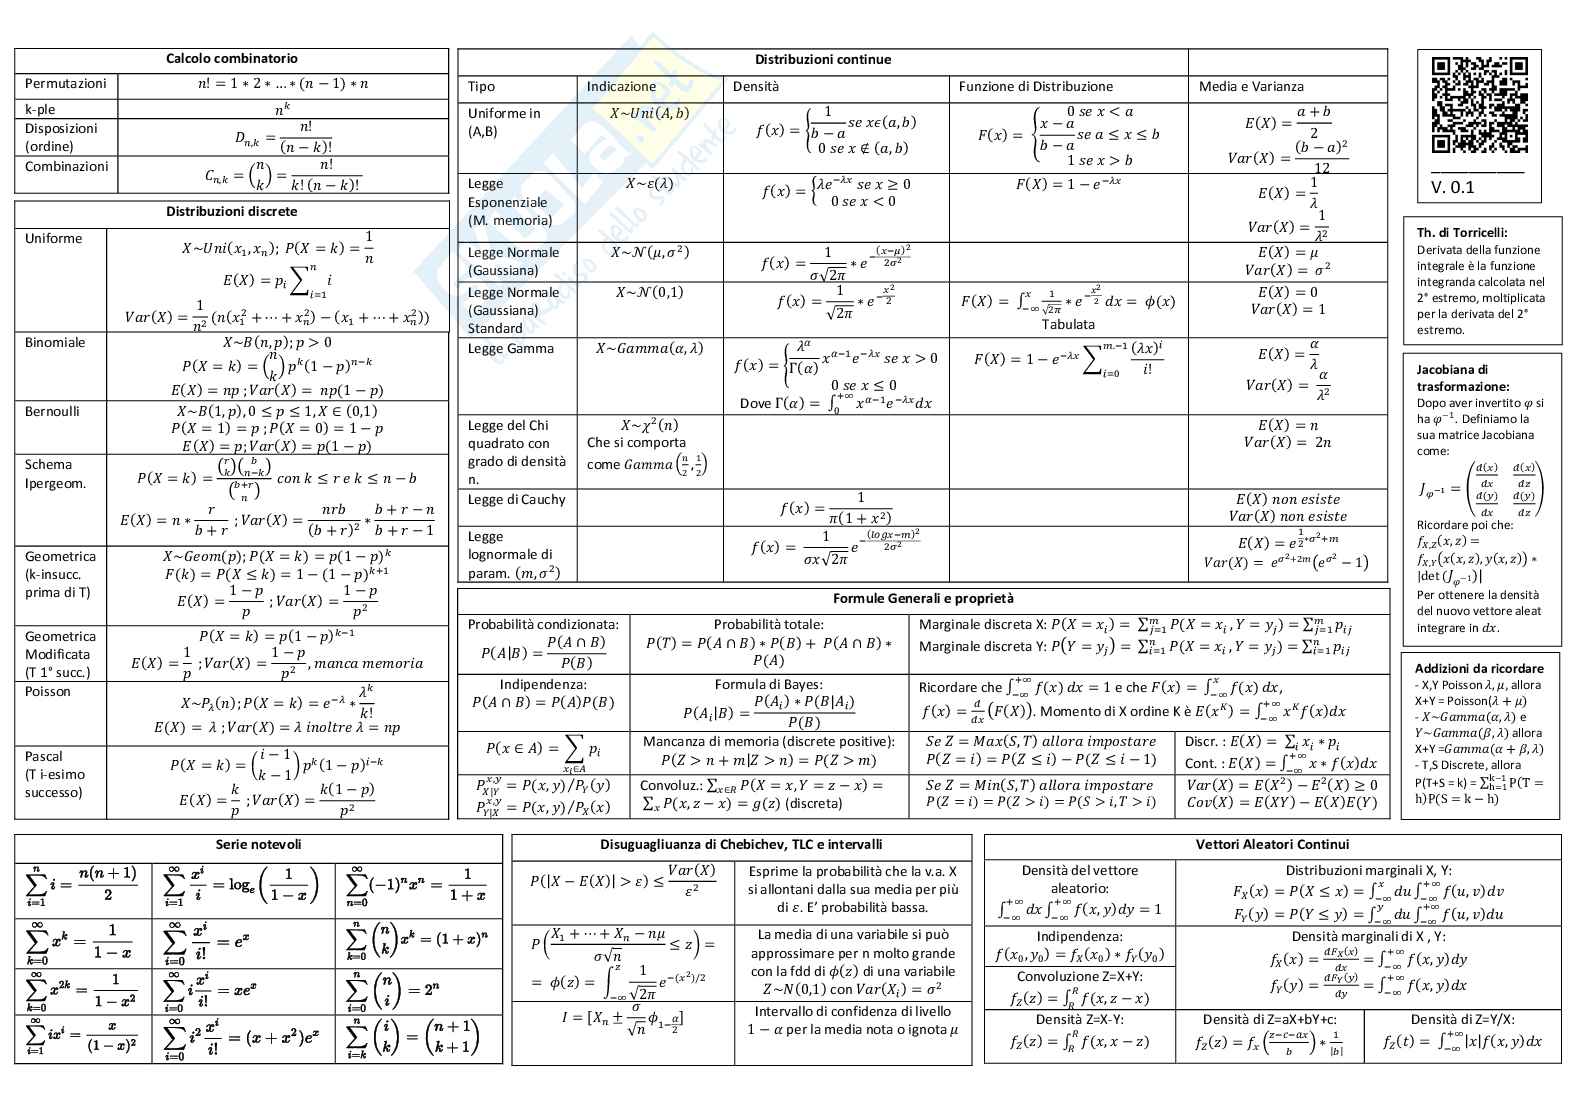 Calcolo combinatorio
Permutazioni n! = 1 * 2 * … * (n − 1) * n
k-ple n^k
Disposizioni (ordine) D_{n,k} = n!/(n − k)!
Combinazioni C_{n,k} = (n k) = n!/(k! (n − k)!)
Distribuzioni discrete
Uniforme X~Uni(x₁, xₙ); P(X = k) = 1/n
E(X) = p_i ∑_{i=1}^{n} i
Var(X) = 1/n² (n(x₁² + ⋯ + xₙ²) − (x₁ + ⋯ + xₙ²))
Binomiale X~B(n, p); p > 0
P(X = k) = (n k) p^k(1 − p)^{n−k}
E(X) = np ; Var(X) = np(1 − p)
Bernoulli X~B(1, p), 0 ≤ p ≤ 1, X ∈ (0,1)
P(X = 1) = p ; P(X = 0) = 1 − p
E(X) = p; Var(X) = p(1 − p)
Schema Ipergeom. P(X = k) = (r k)(b n−k)/(b+r n) con k ≤ r e k ≤ n − b
E(X) = n * r/(b + r) ; Var(X) = nrb/(b + r)² * (b + r − n)/(b + r − 1)
Geometrica (k-insucc. prima di T) X~Geom(p); P(X = k) = p(1 − p)^k
F(k) = P(X ≤ k) = 1 − (1 − p)^{k+1}
E(X) = (1 − p)/p ; Var(X) = (1 − p)/p²
Geometrica Modificata (T 1° succ.) P(X = k) = p(1 − p)^{k−1}
E(X) = 1/p ; Var(X) = (1 − p)/p² , manca memoria
Poisson X~P_λ(n); P(X = k) = e^{−λ} * λ^k/k!
E(X) = λ ; Var(X) = λ inoltre λ = np
Pascal (T i-esimo successo) P(X = k) = (i − 1 k − 1) p^k(1 − p)^{i−k}
E(X) = k/p ; Var(X) = k(1 − p)/p²
Distribuzioni continue
Tipo Indicazione Densità Funzione di Distribuzione Media e Varianza
Uniforme in (A,B) X~Uni(A, b) f(x) = { 1/(b − a) se xϵ(a, b) 0 se x ∉ (a, b) F(x) = { 0 se x < a (x − a)/(b − a) se a ≤ x ≤ b 1 se x > b E(X) = (a + b)/2 Var(X) = (b − a)²/12
Legge Esponenziale (M. memoria) X~ε(λ) f(x) = { λe^{−λx} se x ≥ 0 0 se x < 0 F(X) = 1 − e^{−λx} E(X) = 1/λ Var(X) = 1/λ²
Legge Normale (Gaussiana) X~𝒩(μ, σ²) f(x) = 1/(σ√2π) * e^{−(x−μ)²/2σ²} E(X) = μ Var(X) = σ²
Legge Normale (Gaussiana) Standard X~𝒩(0,1) f(x) = 1/√2π * e^{−x²/2} F(X) = ∫_{−∞}^{x} 1/√2π * e^{−x²/2} dx = ϕ(x) Tabulata E(X) = 0 Var(X) = 1
Legge Gamma X~Gamma(α, λ) f(x) = { λ^α/Γ(α) x^{α−1}e^{−λx} se x > 0 0 se x ≤ 0 Dove Γ(α) = ∫_0^{+∞} x^{α−1}e^{−λx}dx F(X) = 1 − e^{−λx} ∑_{i=0}^{m.−1} (λx)^i/i! E(X) = α/λ Var(X) = α/λ²
Legge del Chi quadrato con grado di densità n. X~χ²(n) Che si comporta come Gamma(n/2, 1/2) E(X) = n Var(X) = 2n
Legge di Cauchy f(x) = 1/(π(1 + x²)) E(X) non esiste Var(X) non esiste
Legge lognormale di param. (m, σ²) f(x) = 1/(σx√2π) e^{−(logx−m)²/2σ²} E(X) = e^{1/2*σ²+m} Var(X) = e^{σ²+2m}(e^{σ²} − 1)
Formule Generali e proprietà
Probabilità condizionata: P(A|B) = P(A ∩ B)/P(B)
Probabilità totale: P(T) = P(A ∩ B) * P(B) + P(A ∩ B) * P(A)
Marginale discreta X: P(X = x_i) = ∑_{j=1}^{m} P(X = x_i , Y = y_j) = ∑_{j=1}^{m} p_{ij}
Marginale discreta Y: P(Y = y_j) = ∑_{i=1}^{n} P(X = x_i , Y = y_j) = ∑_{i=1}^{n} p_{ij}
Indipendenza: P(A ∩ B) = P(A)P(B)
Formula di Bayes: P(A_i|B) = P(A_i) * P(B|A_i)/P(B)
Ricordare che ∫_{−∞}^{+∞} f(x) dx = 1 e che F(x) = ∫_{−∞}^{x} f(x) dx,
f(x) = d/dx (F(X)). Momento di X ordine K è E(x^K) = ∫_{−∞}^{+∞} x^K f(x)dx
P(x ∈ A) = ∑_{x_i∈A} p_i
Mancanza di memoria (discrete positive): P(Z > n + m|Z > n) = P(Z > m)
Se Z = Max(S, T) allora impostare P(Z = i) = P(Z ≤ i) − P(Z ≤ i − 1)
Discr. : E(X) = ∑_i x_i * p_i
Cont. : E(X) = ∫_{−∞}^{+∞} x * f(x)dx
P_{X|Y}^{x,y} = P(x, y)/P_Y(y)
P_{Y|X}^{x,y} = P(x, y)/P_X(x)
Convoluz.: ∑_{x∈R} P(X = x, Y = z − x) = ∑_x P(x, z − x) = g(z) (discreta)
Se Z = Min(S, T) allora impostare P(Z = i) = P(Z > i) = P(S > i, T > i)
Var(X) = E(X²) − E²(X) ≥ 0
Cov(X) = E(XY) − E(X)E(Y)
V. 0.1
Th. di Torricelli:
Derivata della funzione
integrale è la funzione
integranda calcolata nel
2° estremo, moltiplicata
per la derivata del 2°
estremo.
Jacobiana di
trasformazione:
Dopo aver invertito φ si
ha φ⁻¹. Definiamo la
sua matrice Jacobiana
come:
J_{φ⁻¹} = ( d(x)/dx d(x)/dz d(y)/dx d(y)/dz )
Ricordare poi che:
f_{X,Z}(x, z) =
f_{X,Y}(x(x, z), y(x, z)) *
|det (J_{φ⁻¹})|
Per ottenere la densità
del nuovo vettore aleat
integrare in dx.
Addizioni da ricordare
- X,Y Poisson λ, μ, allora
X+Y = Poisson(λ + μ)
- X~Gamma(α, λ) e
Y~Gamma(β, λ) allora
X+Y =Gamma(α + β, λ)
- T,S Discrete, allora
P(T+S = k) = ∑_{h=1}^{k−1} P(T =
h)P(S = k − h)
Serie notevoli
∑_{i=1}^{n} i = n(n + 1)/2 ∑_{i=1}^{∞} x^i/i = log_e(1/(1 − x)) ∑_{n=0}^{∞} (−1)^n x^n = 1/(1 + x)
∑_{k=0}^{∞} x^k = 1/(1 − x) ∑_{i=0}^{∞} x^i/i! = e^x ∑_{k=0}^{n} (n k) x^k = (1 + x)^n
∑_{k=0}^{∞} x^{2k} = 1/(1 − x²) ∑_{i=0}^{∞} i x^i/i! = xe^x ∑_{i=0}^{n} (n i) = 2^n
∑_{i=1}^{∞} ix^i = x/(1 − x)² ∑_{i=0}^{∞} i² x^i/i! = (x + x²)e^x ∑_{i=k}^{n} (i k) = (n + 1 k + 1)
Disuguagliuanza di Chebichev, TLC e intervalli
P(|X − E(X)| > ε) ≤ Var(X)/ε²
Esprime la probabilità che la v.a. X
si allontani dalla sua media per più
di ε. E’ probabilità bassa.
P((X₁ + ⋯ + Xₙ − nμ)/(σ√n) ≤ z) =
= ϕ(z) = ∫_{−∞}^{z} 1/√2π e^{−(x²)/2}
La media di una variabile si può
approssimare per n molto grande
con la fdd di ϕ(z) di una variabile
Z~N(0,1) con Var(X_i) = σ²
I = [Xₙ ± σ/√n ϕ_{1−α/2}]
Intervallo di confidenza di livello
1 − α per la media nota o ignota μ
Vettori Aleatori Continui
Densità del vettore
aleatorio:
∫_{−∞}^{+∞} dx ∫_{−∞}^{+∞} f(x, y)dy = 1
Distribuzioni marginali X, Y:
F_X(x) = P(X ≤ x) = ∫_{−∞}^{x} du ∫_{−∞}^{+∞} f(u, v)dv
F_Y(y) = P(Y ≤ y) = ∫_{−∞}^{y} du ∫_{−∞}^{+∞} f(u, v)du
Indipendenza:
f(x₀, y₀) = f_X(x₀) * f_Y(y₀)
Convoluzione Z=X+Y:
f_Z(z) = ∫_R^R f(x, z − x)
Densità marginali di X , Y:
f_X(x) = dF_X(x)/dx = ∫_{−∞}^{+∞} f(x, y)dy
f_Y(y) = dF_Y(y)/dy = ∫_{−∞}^{+∞} f(x, y)dx
Densità Z=X-Y:
f_Z(z) = ∫_R^R f(x, x − z)
Densità di Z=aX+bY+c:
f_Z(z) = f_x((z−c−ax)/b) * 1/|b|
Densità di Z=Y/X:
f_Z(t) = ∫_{−∞}^{+∞} |x|f(x, y)dx